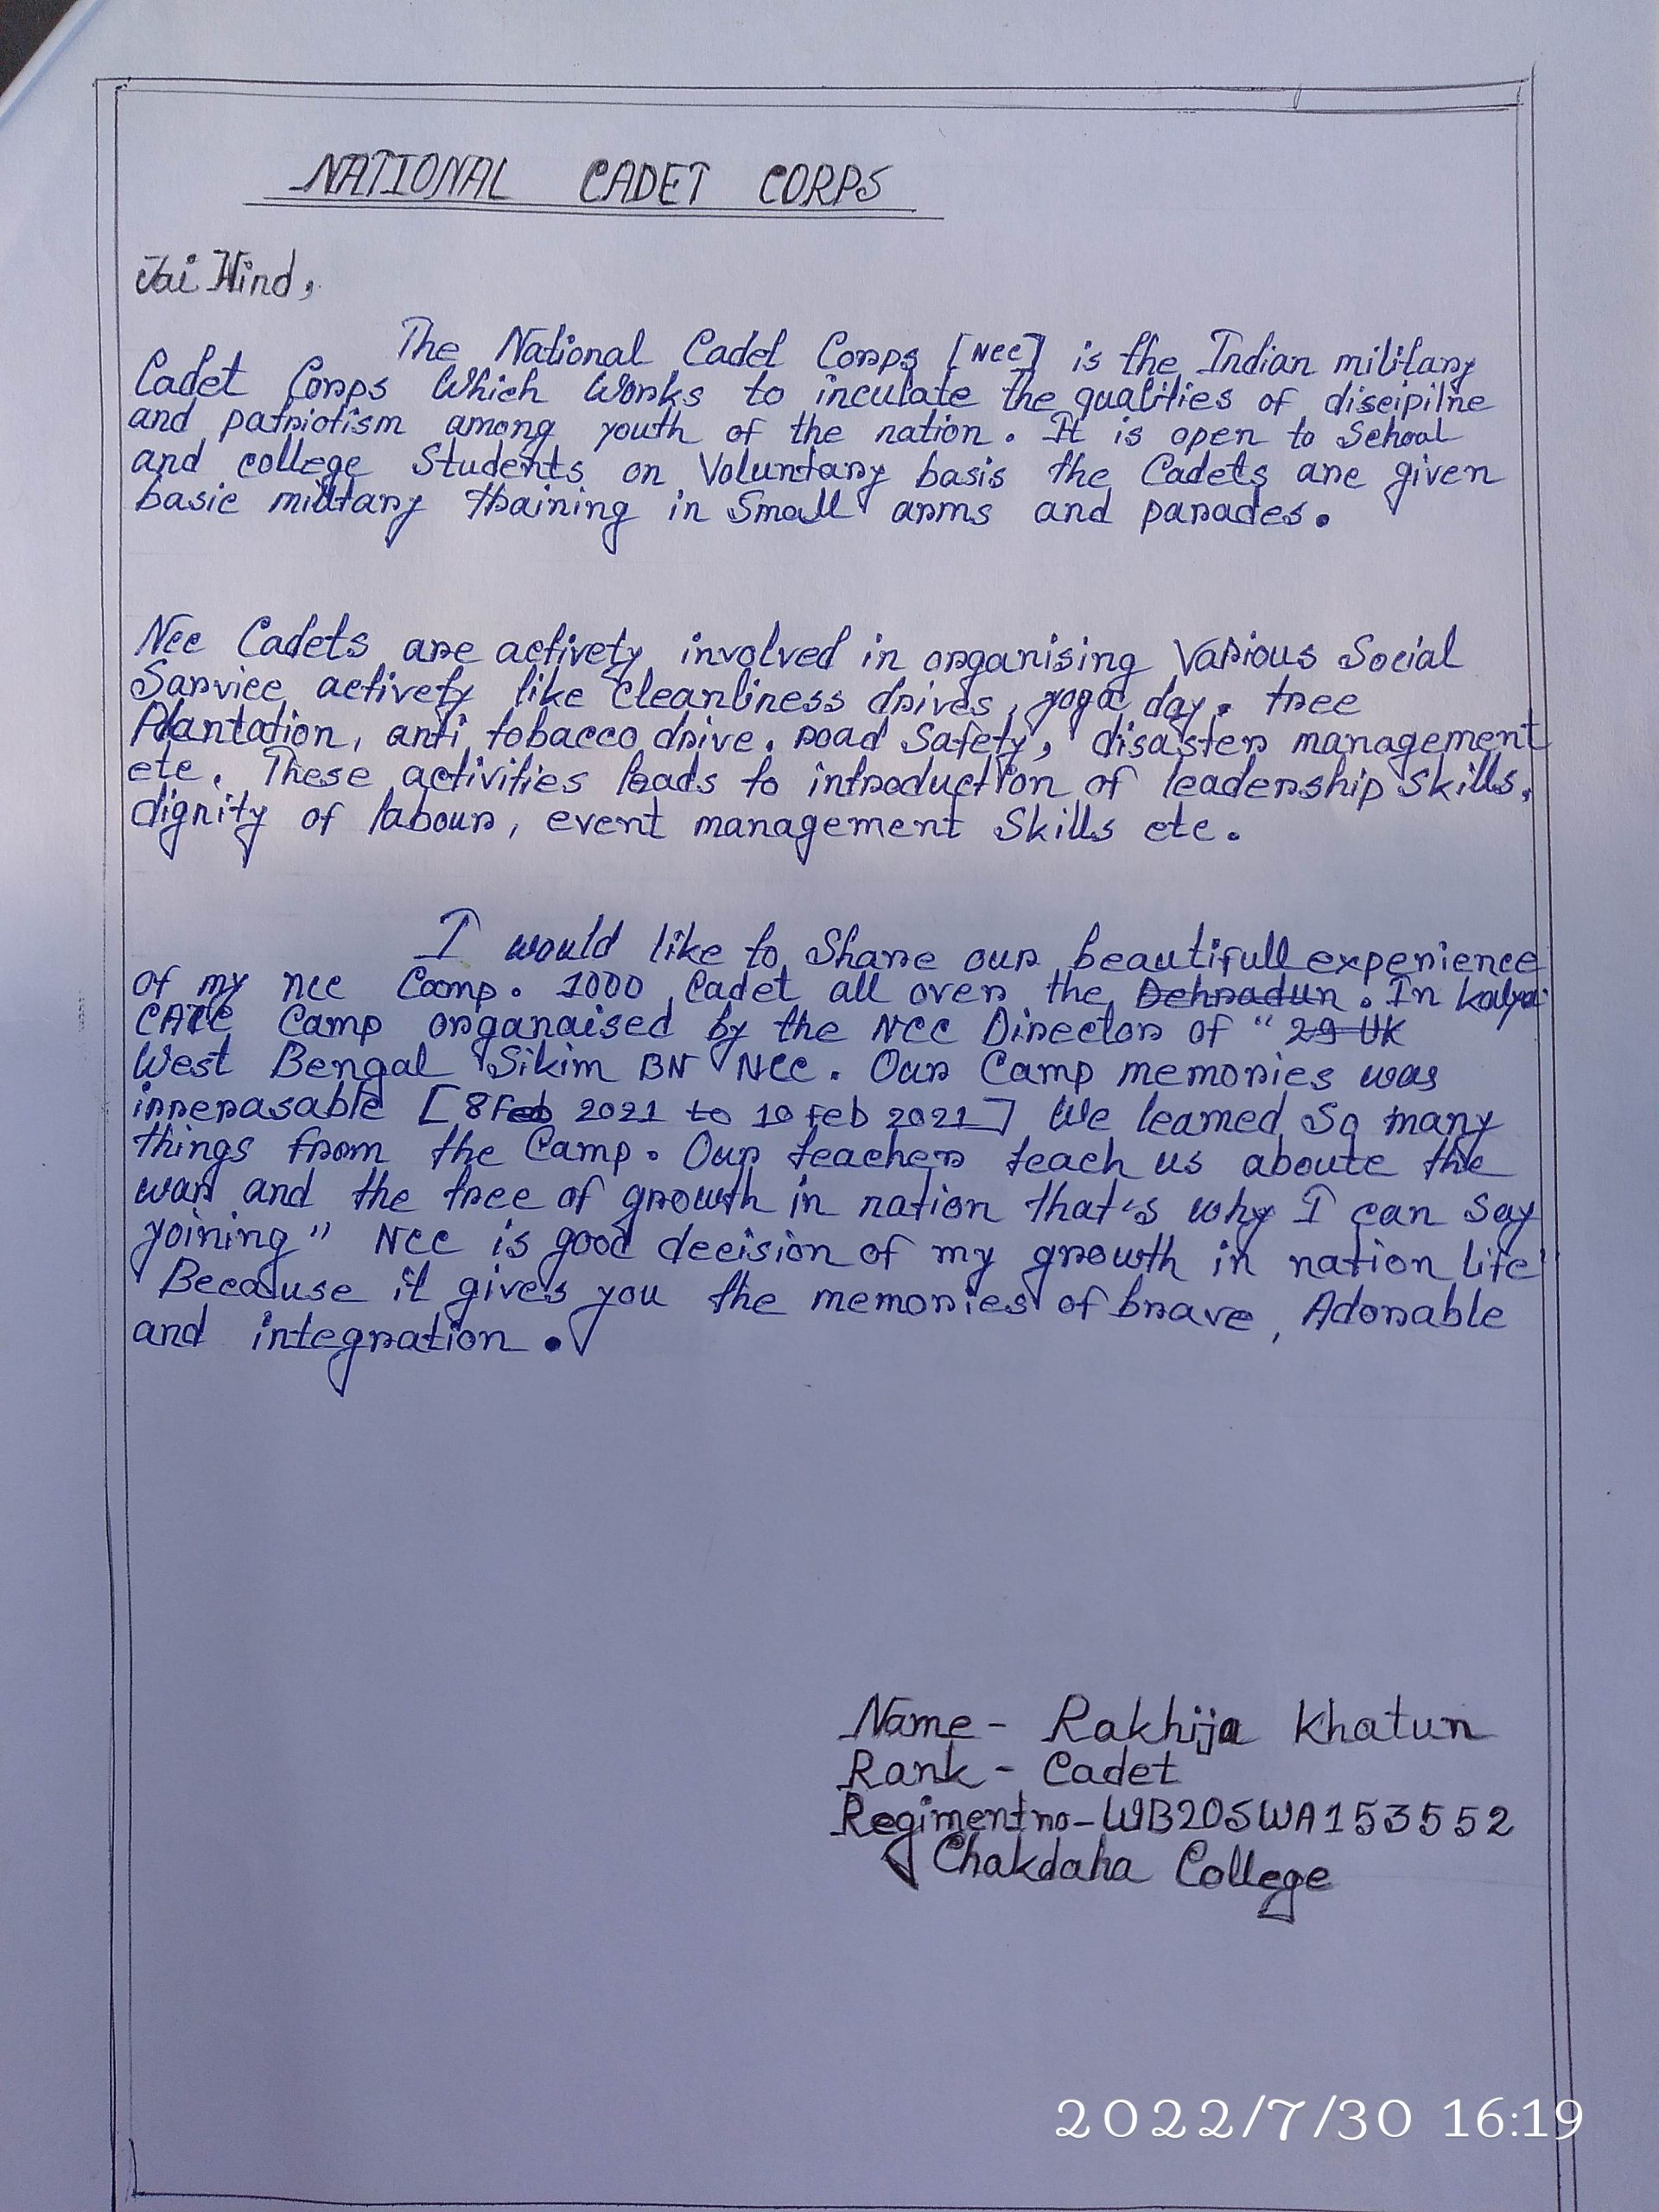 NATIONAL CADET CORPS
Jai Hind,
The National Cadet Corps [NCC] is the Indian military
Cadet Corps Which Works to inculate the qualities of discipilne
and patriotism among youth of the nation. It is open to School
and college Students on Voluntary basis the Cadets are given
basic military training in Small arms and parades.
Ncc Cadets are activety involved in organising Various Social
Sarvice activety like Cleanliness drives, yoga day, tree
Plantation, anti tobacco drive, road Safety, disaster management
etc. These activities leads to introduction of leadership Skills,
dignity of labour, event management Skills etc.
I would like to Share our beautifull experience
of my ncc Camp. 1000 Cadet all over the Dehradun. In
CATC Camp organaised by the NCC Director of "29 UK
West Bengal Sikim BN NCC. Our Camp memories was
irrerasable [8 Feb 2021 to 10 feb 2021] We learned So many
things from the Camp. Our teacher teach us aboute the
war and the tree of growth in nation that's why I can say
yoining" NCC is good decision of my growth in nation life
Because it gives you the memories of brave, Adorable
and integration.
Name - Rakhija Khatun
Rank - Cadet
Regiment no - WB20SWA153552
Chakdaha College
2022/7/30 16:19